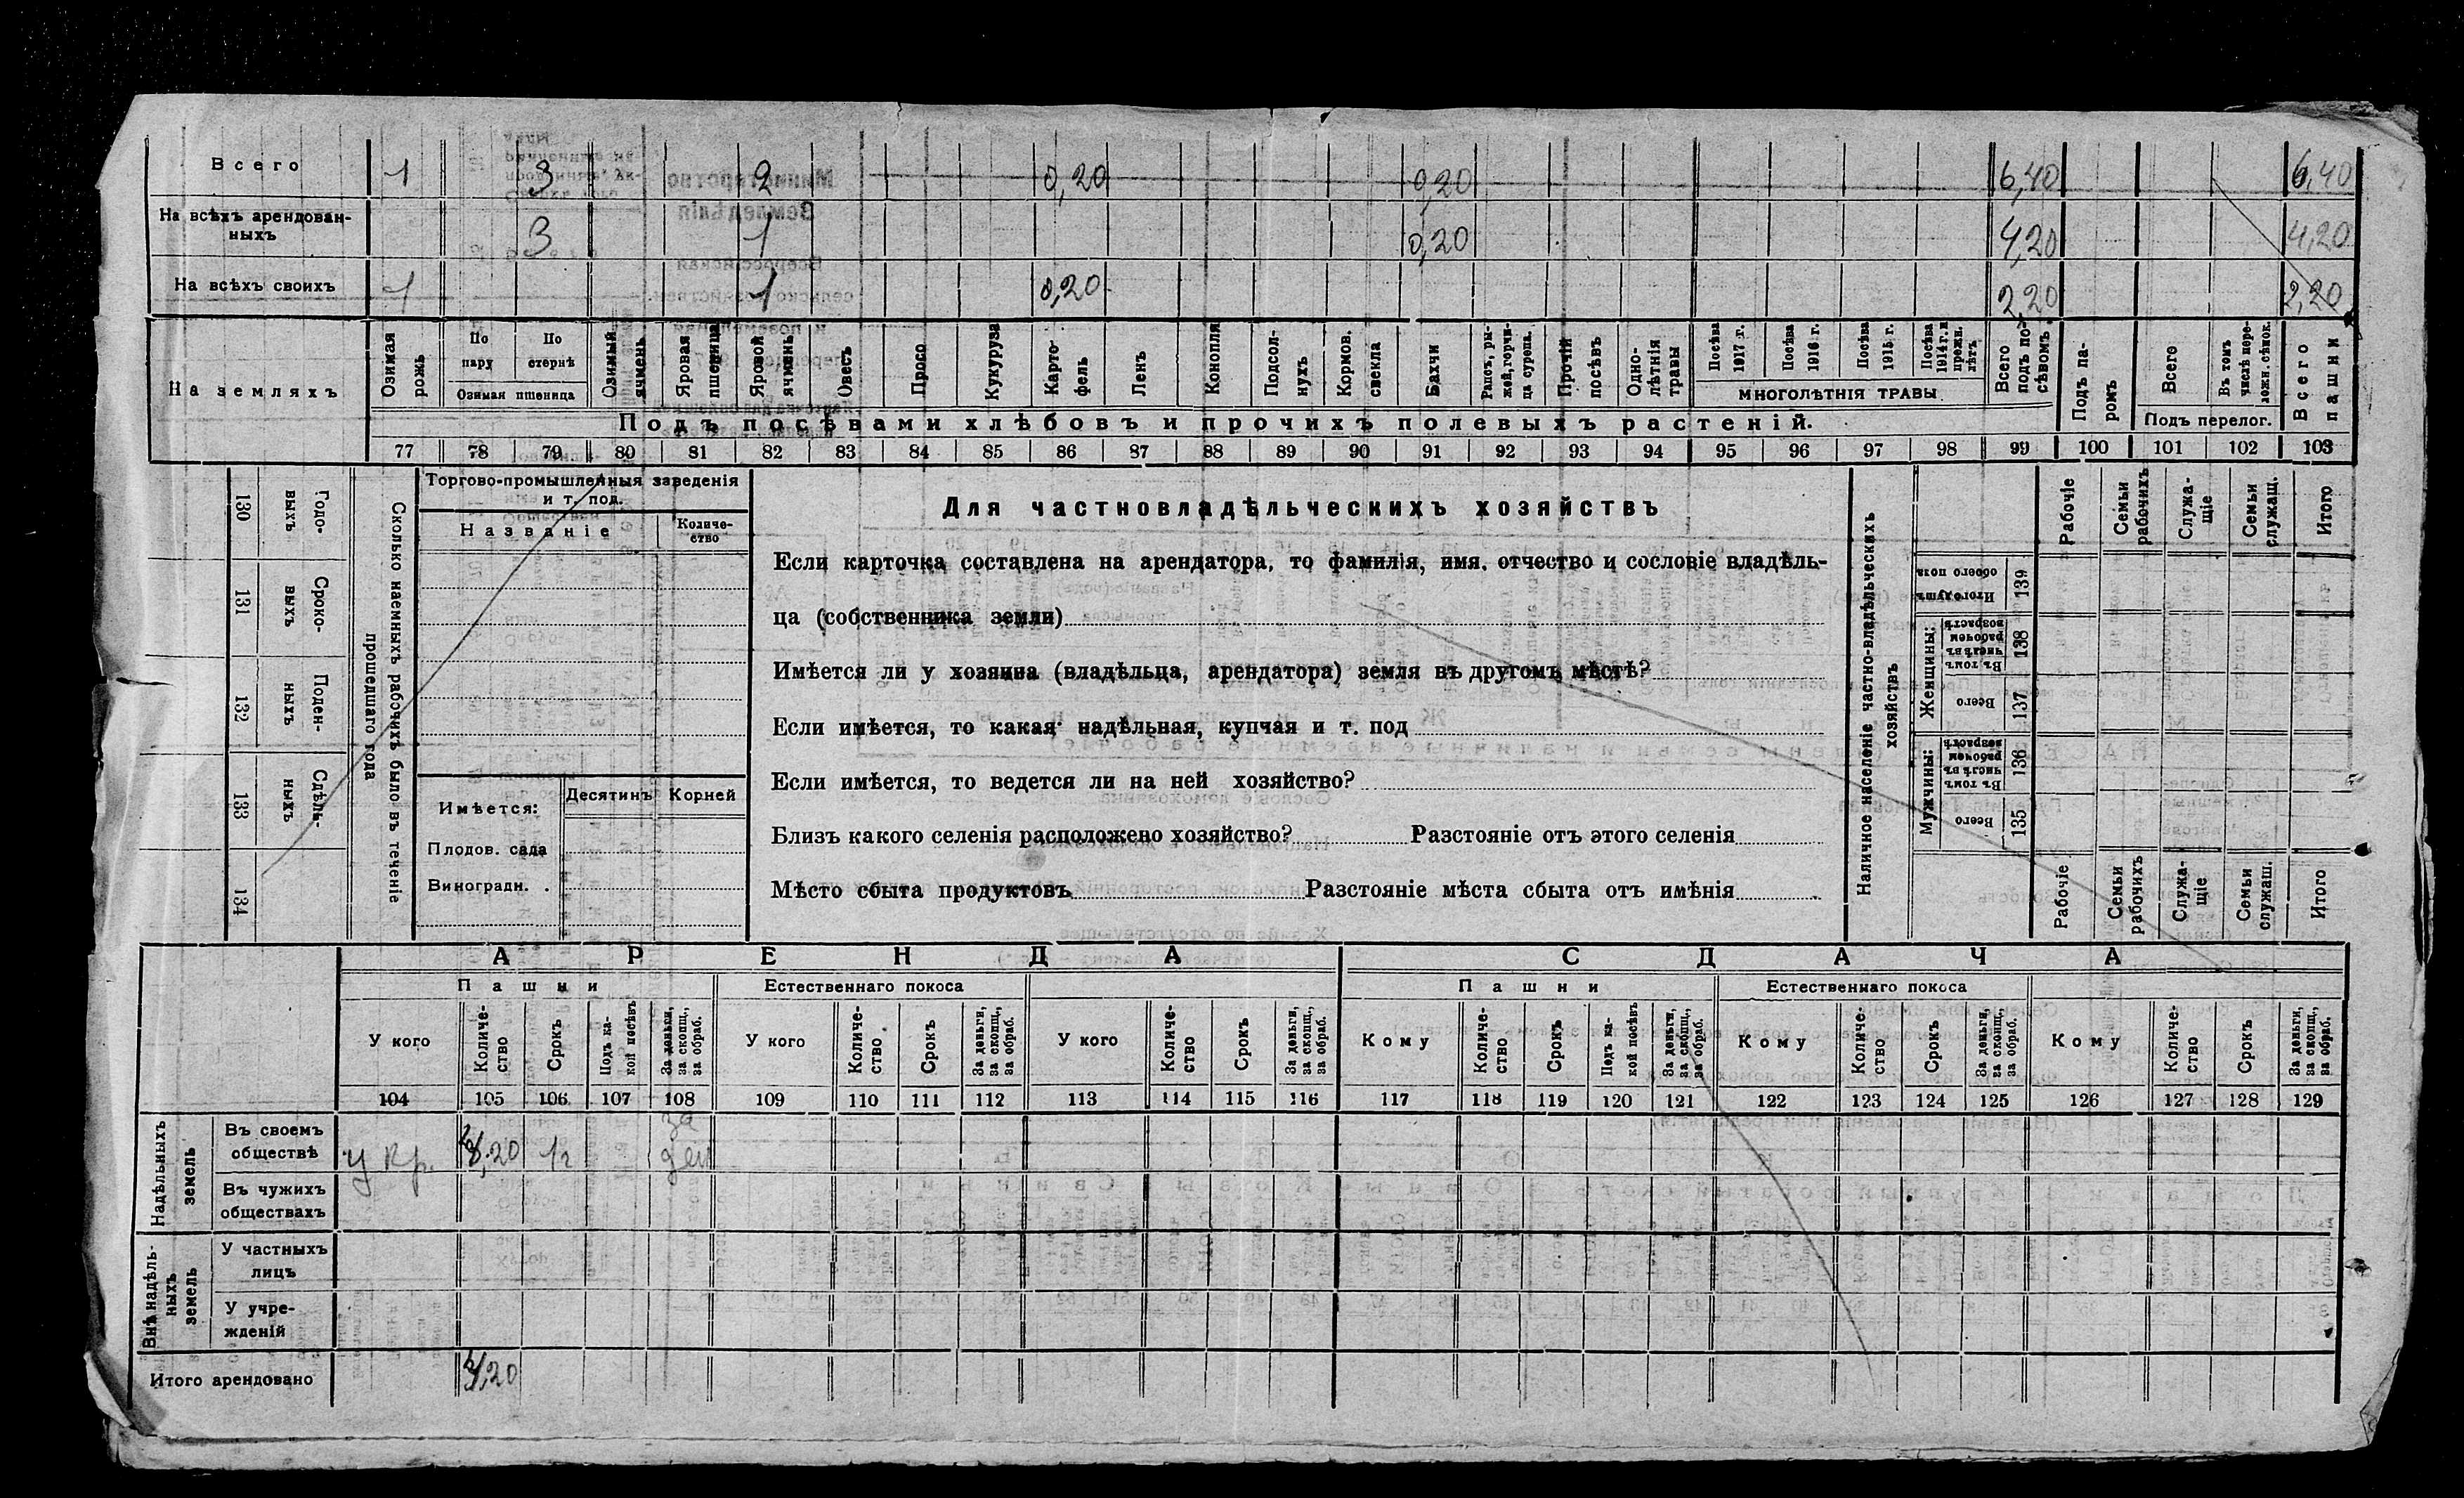 Всего 1 3 2 0,20 0,20 6,40 6,40
На всѣхъ арендован-
ныхъ 3 1 0,20 4,20 4,20
На всѣхъ своихъ 1 1 0,20 2,20 2,20
На земляхъ
Озимая рожь
По пару
По стернѣ
Озимая пшеница
Озимый ячмень
Яровая пшеница
Яровой ячмень
Овесъ
Просо
Кукуруза
Карто-
фель
Ленъ
Конопля
Подсол-
нухъ
Кормов.
свекла
Бахчи
Рапсъ, ры-
жей, горчи-
ца сурепа.
Прочій
посѣвъ
Одно-
лѣтнія
травы
Посѣва
1917 г.
Посѣва
1916 г.
Посѣва
1915 г.
Посѣва
1914 г. и
прежн.
лѣтъ
МНОГОЛѢТНІЯ ТРАВЫ
Всего
подъ по-
сѣвомъ
Подъ па-
ромъ
Всего
Въ томъ
числѣ пере-
ложн. сѣнок.
Подъ перелог.
Всего
пашни
Подъ посѣвами хлѣбовъ и прочихъ полевыхъ растеній.
77 78 79 80 81 82 83 84 85 86 87 88 89 90 91 92 93 94 95 96 97 98 99 100 101 102 103
130 Годо-
выхъ
131 Сроко-
выхъ
132 Поден-
ныхъ
133 Сдѣль-
ныхъ
134
Сколько наемныхъ рабочихъ было въ теченіе
прошедшаго года
Торгово-промышленныя заведенія
и т. под.
Названіе
Количе-
ство
Имѣется: Десятинъ Корней
Плодов. сада
Виноградн. .
Для частновладѣльческихъ хозяйствъ
Если карточка составлена на арендатора, то фамилія, имя, отчество и сословіе владѣль-
ца (собственника земли)
Имѣется ли у хозяина (владѣльца, арендатора) земля въ другомъ мѣстѣ?
Если имѣется, то какая надѣльная, купчая и т. под
Если имѣется, то ведется ли на ней хозяйство?
Близъ какого селенія расположено хозяйство? Разстояніе отъ этого селенія
Мѣсто сбыта продуктовъ Разстояніе мѣста сбыта отъ имѣнія
Наличное населеніе частно-владѣльческихъ
хозяйствъ
Рабочіе
Семьи
рабочихъ
Служа-
щіе
Семьи
служащ.
Итого
Итого душъ
обоего пола
139
Женщины:
Въ томъ
числѣ въ
рабочемъ
возрастѣ
138
Всего
137
Мужчины:
Въ томъ
числѣ въ
рабочемъ
возрастѣ
136
Всего
135
Рабочіе
Семьи
рабочихъ
Служа-
щіе
Семьи
служащ.
Итого
АРЕНДА СДАЧА
Пашни Естественнаго покоса Пашни Естественнаго покоса
У кого
Количе-
ство
Срокъ
Подъ ка-
кой посѣвъ
За деньги,
за скопщ.,
за обраб.
У кого
Количе-
ство
Срокъ
За деньги,
за скопщ.,
за обраб.
У кого
Количе-
ство
Срокъ
За деньги,
за скопщ.,
за обраб.
Кому
Количе-
ство
Срокъ
Подъ ка-
кой посѣвъ
За деньги,
за скопщ.,
за обраб.
Кому
Количе-
ство
Срокъ
За деньги,
за скопщ.,
за обраб.
Кому
Количе-
ство
Срокъ
За деньги,
за скопщ.,
за обраб.
104 105 106 107 108 109 110 111 112 113 114 115 116 117 118 119 120 121 122 123 124 125 126 127 128 129
Надѣльныхъ
земель
Въ своемъ
обществѣ
у кр. 4,20 1г за
ден
Въ чужихъ
обществахъ
Внѣ надѣль-
ныхъ
земель
У частныхъ
лицъ
У учре-
жденій
Итого арендовано 4,20